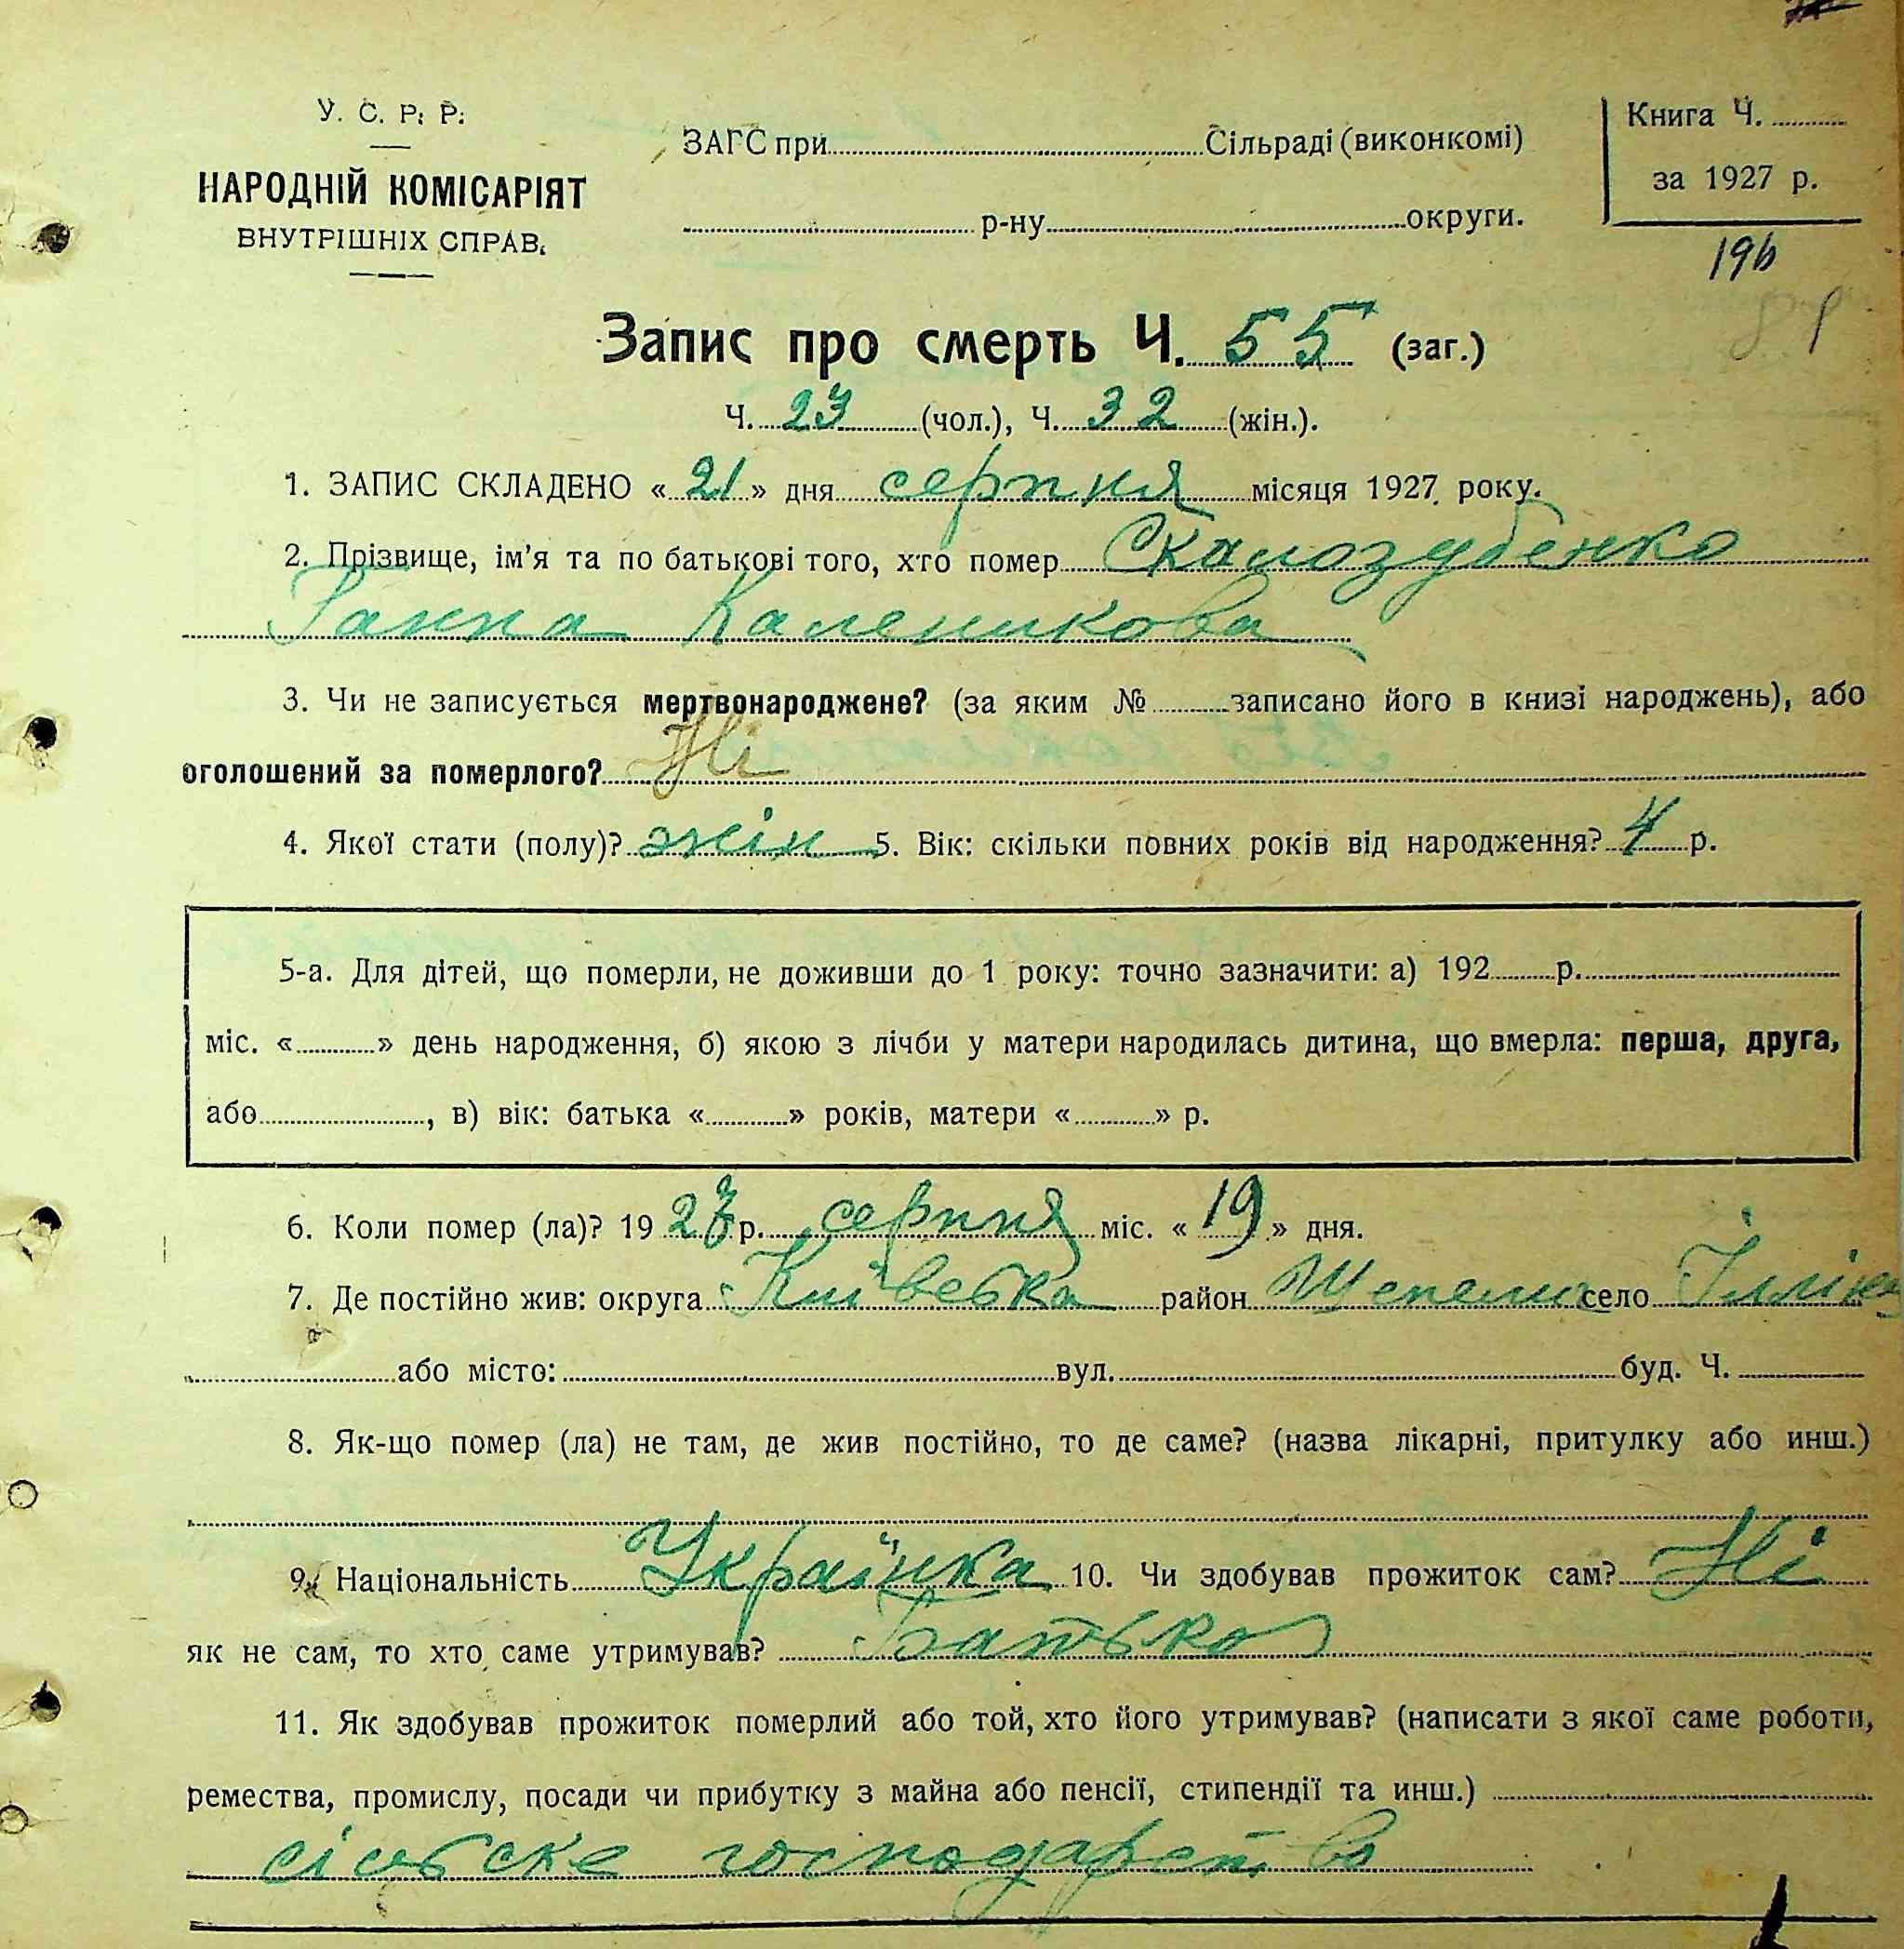 У. С. Р. Р.
НАРОДНІЙ КОМІСАРІЯТ
ВНУТРІШНІХ СПРАВ.
ЗАГС при Сільраді (виконкомі)
р-ну округи.
Книга Ч.
за 1927 р.
196
Запис про смерть Ч. 55 (заг.)
Ч. 23 (чол.), Ч. 32 (жін.).
1. ЗАПИС СКЛАДЕНО « 21 » дня серпня місяця 1927 року.
2. Прізвище, ім'я та по батькові того, хто помер Скалозубенко
Ганна Каленикова
3. Чи не записується мертвонароджене? (за яким № записано його в книзі народжень), або
оголошений за померлого? Ні
4. Якої стати (полу)? жін 5. Вік: скільки повних років від народження? 4 р.
5-а. Для дітей, що померли, не доживши до 1 року: точно зазначити: а) 192 р.
міс. « » день народження, б) якою з лічби у матери народилась дитина, що вмерла: перша, друга,
або , в) вік: батька « » років, матери « » р.
6. Коли помер (ла)? 19 27 р. серпня міс. « 19 » дня.
7. Де постійно жив: округа Київська район Шепелич село
або місто: вул. буд. Ч.
8. Як-що помер (ла) не там, де жив постійно, то де саме? (назва лікарні, притулку або инш.)
9. Національність Українка 10. Чи здобував прожиток сам? Ні
як не сам, то хто саме утримував? Батько
11. Як здобував прожиток померлий або той, хто його утримував? (написати з якої саме роботи,
ремества, промислу, посади чи прибутку з майна або пенсії, стипендії та инш.)
сільське господарство